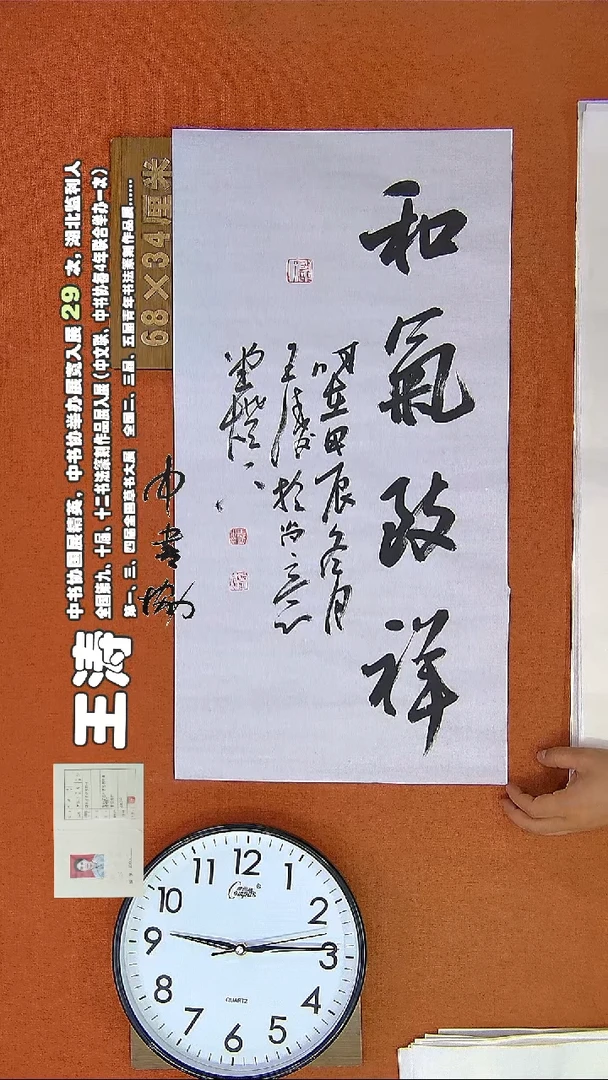 和氣致祥
时在甲辰冬月
王涛於尚意
堂灯下
王涛
中书协国展精英，中书协举办展览入展29次，湖北监利人
全国第九、十届、十二书法篆刻作品展入展（中文联、中书协每4年联合举办一次）
第一、三、四届全国草书大展 全国二、三届、五届青年书法篆刻作品展……
68×34厘米
中书协
12
1
2
3
4
5
6
7
8
9
10
11
QUARTZ